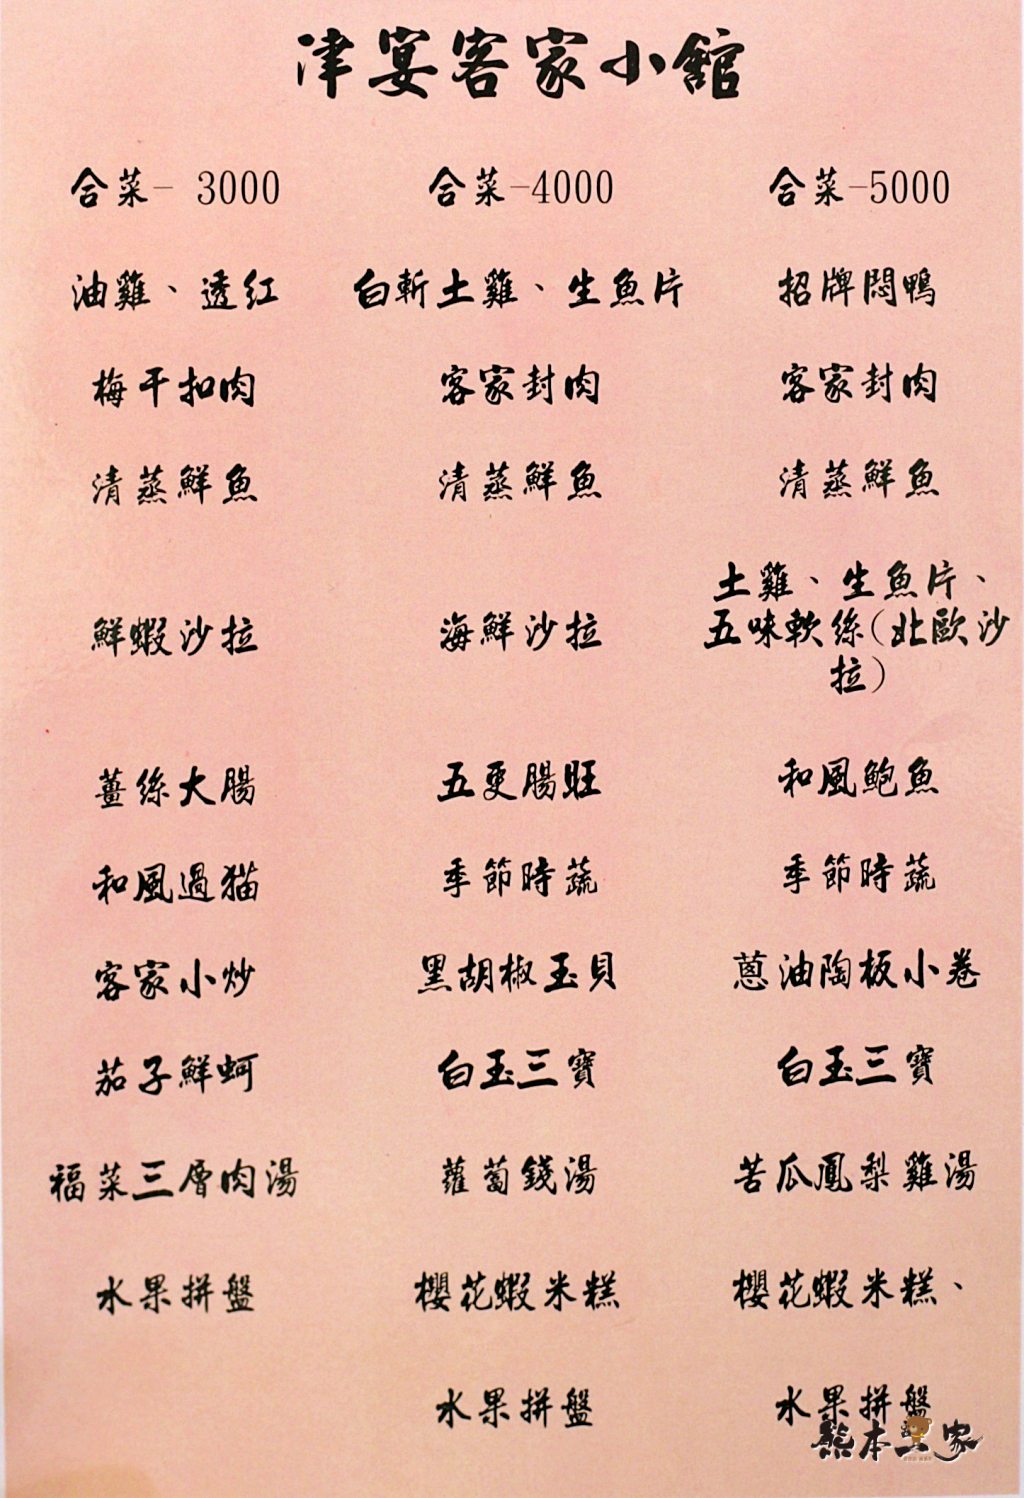 津宴客家小館
合菜- 3000
合菜-4000
合菜-5000
油雞、透紅
白斬土雞、生魚片
招牌悶鴨
梅干扣肉
客家封肉
客家封肉
清蒸鮮魚
清蒸鮮魚
清蒸鮮魚
鮮蝦沙拉
海鮮沙拉
土雞、生魚片、
五味軟絲(北歐沙
拉)
薑絲大腸
五更腸旺
和風鮑魚
和風過貓
季節時蔬
季節時蔬
客家小炒
黑胡椒玉貝
蔥油陶板小卷
茄子鮮蚵
白玉三寶
白玉三寶
福菜三層肉湯
蘿蔔錢湯
苦瓜鳳梨雞湯
水果拼盤
櫻花蝦米糕
櫻花蝦米糕、
水果拼盤
水果拼盤
熊本一家